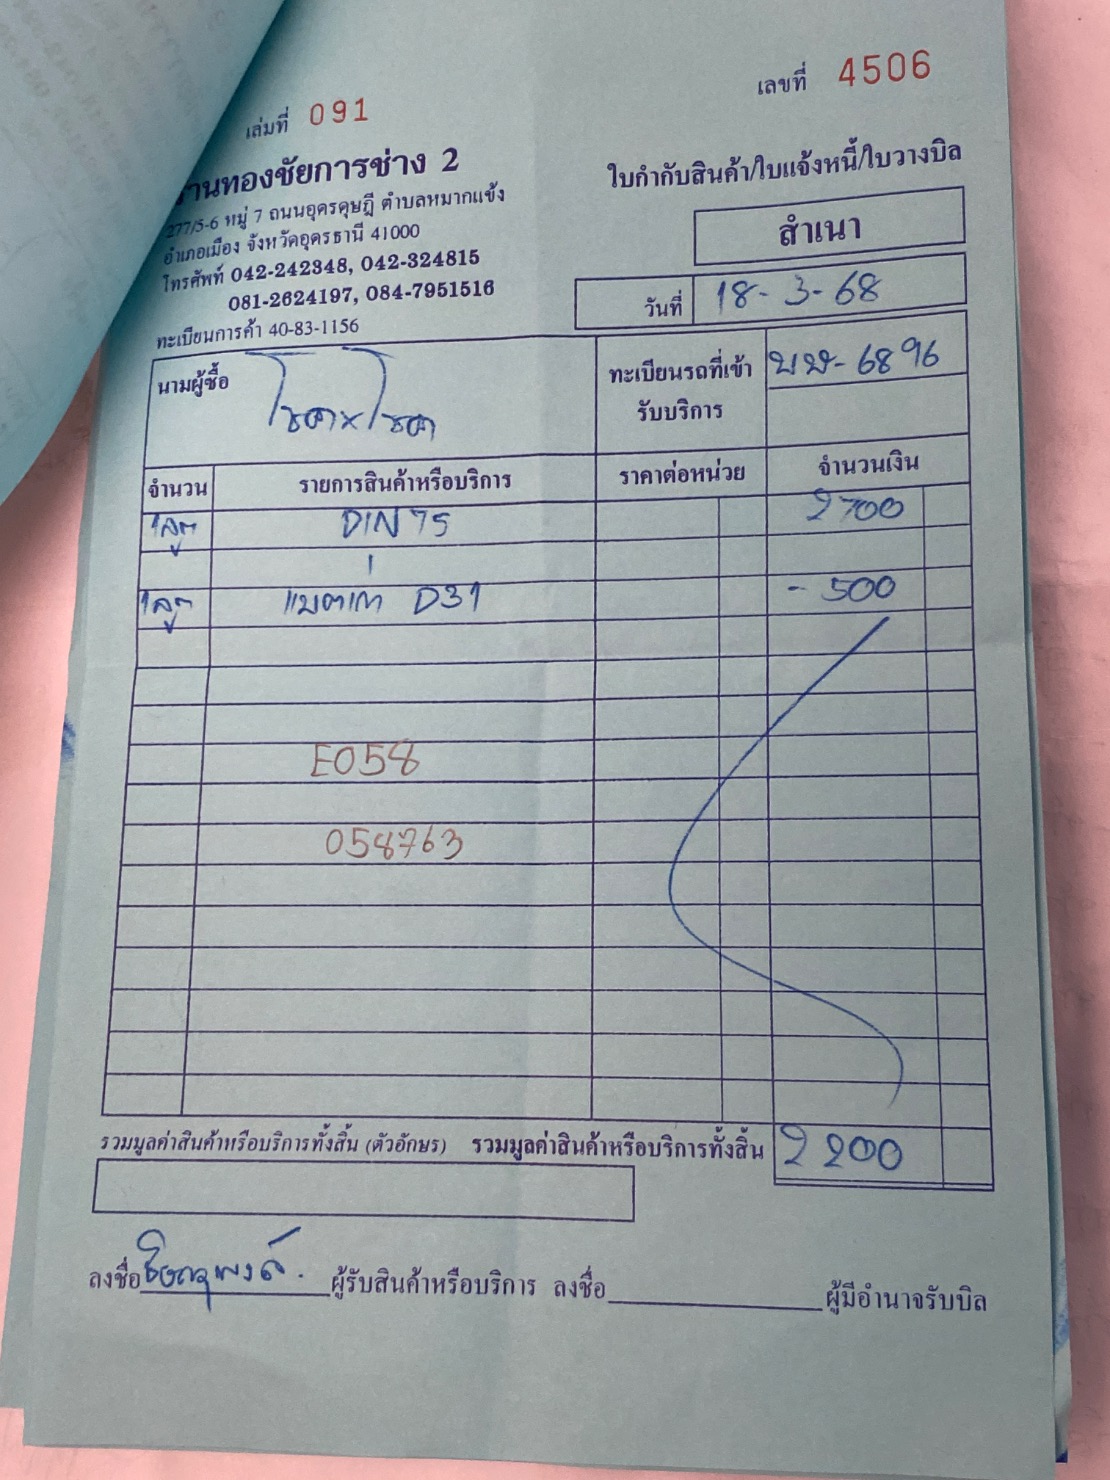 เล่มที่ 091
เลขที่ 4506
ร้านทองชัยการช่าง 2
277/5-6 หมู่ 7 ถนนอุดรดุษฎี ตำบลหมากแข้ง
อำเภอเมือง จังหวัดอุดรธานี 41000
โทรศัพท์ 042-242348, 042-324815
081-2624197, 084-7951516
ทะเบียนการค้า 40-83-1156
ใบกำกับสินค้า/ใบแจ้งหนี้/ใบวางบิล
สำเนา
วันที่ 18-3-68
นามผู้ซื้อ โชคxโชค
ทะเบียนรถที่เข้า
รับบริการ
-6896
จำนวน รายการสินค้าหรือบริการ ราคาต่อหน่วย จำนวนเงิน
1ลูก DIN 75 2700
1ลูก แบตเก่า D31 -500
E058
058763
รวมมูลค่าสินค้าหรือบริการทั้งสิ้น (ตัวอักษร) รวมมูลค่าสินค้าหรือบริการทั้งสิ้น 2200
ลงชื่อ ผู้รับสินค้าหรือบริการ ลงชื่อ ผู้มีอำนาจรับบิล